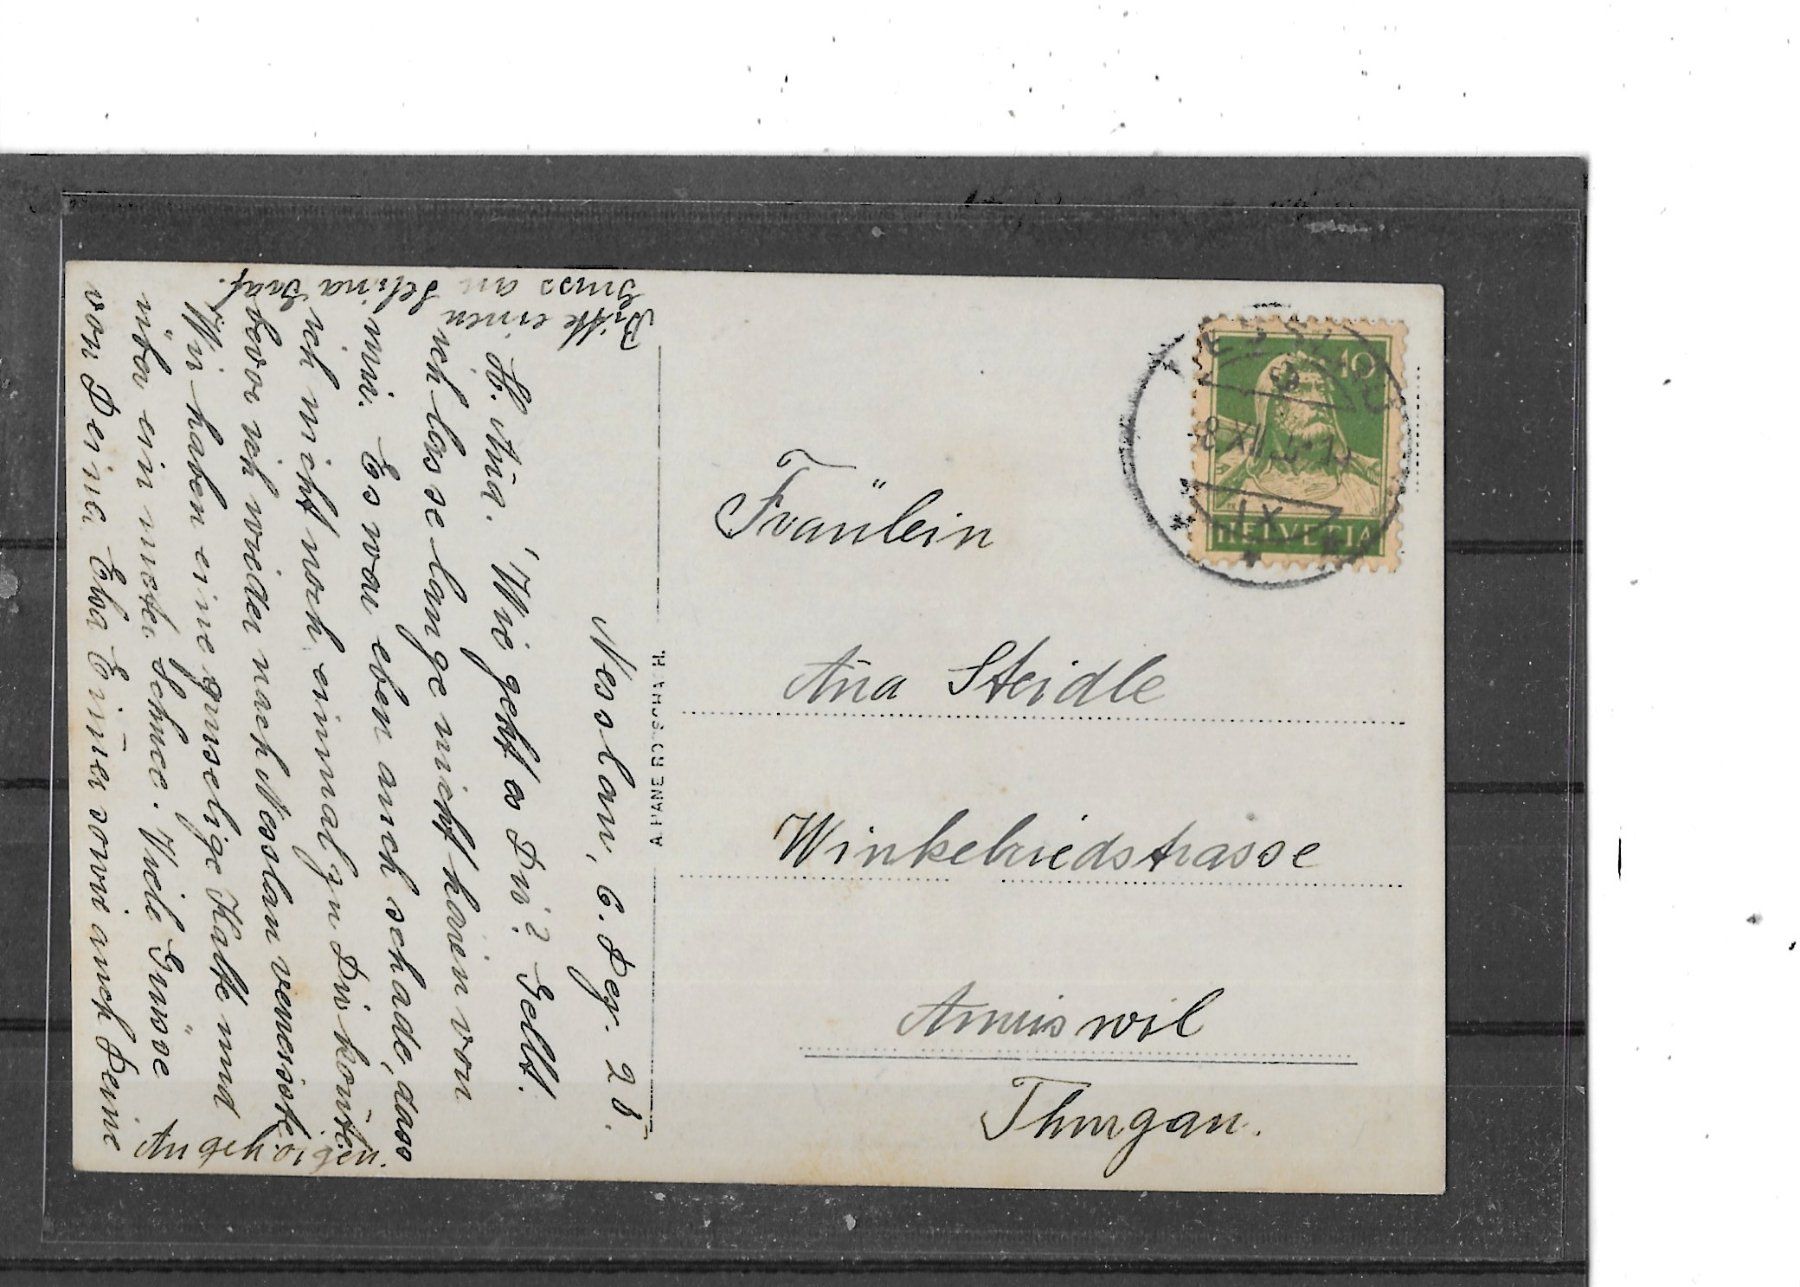 Nesslau, 6. Dez. 28.
Lb. Aña. Wie geht's Dir? Gellt.
ich lasse lange nicht hören von
mir. Es war eben auch schade, dass
ich nicht noch einmal zu Dir koñte
bevor ich wieder nach Nesslau verreisste.
Wir haben eine gruselige Kälte und
über ein meter Schnee. Viele Grüsse
von Deiner Elsa sowie auch Deine
Angehörigen.
Bitte einen
Gruss an Selina Graf.
HELVETIA
10
Fräulein
Aña Steidle
Winkelriedstrasse
Amriswil
Thurgau.